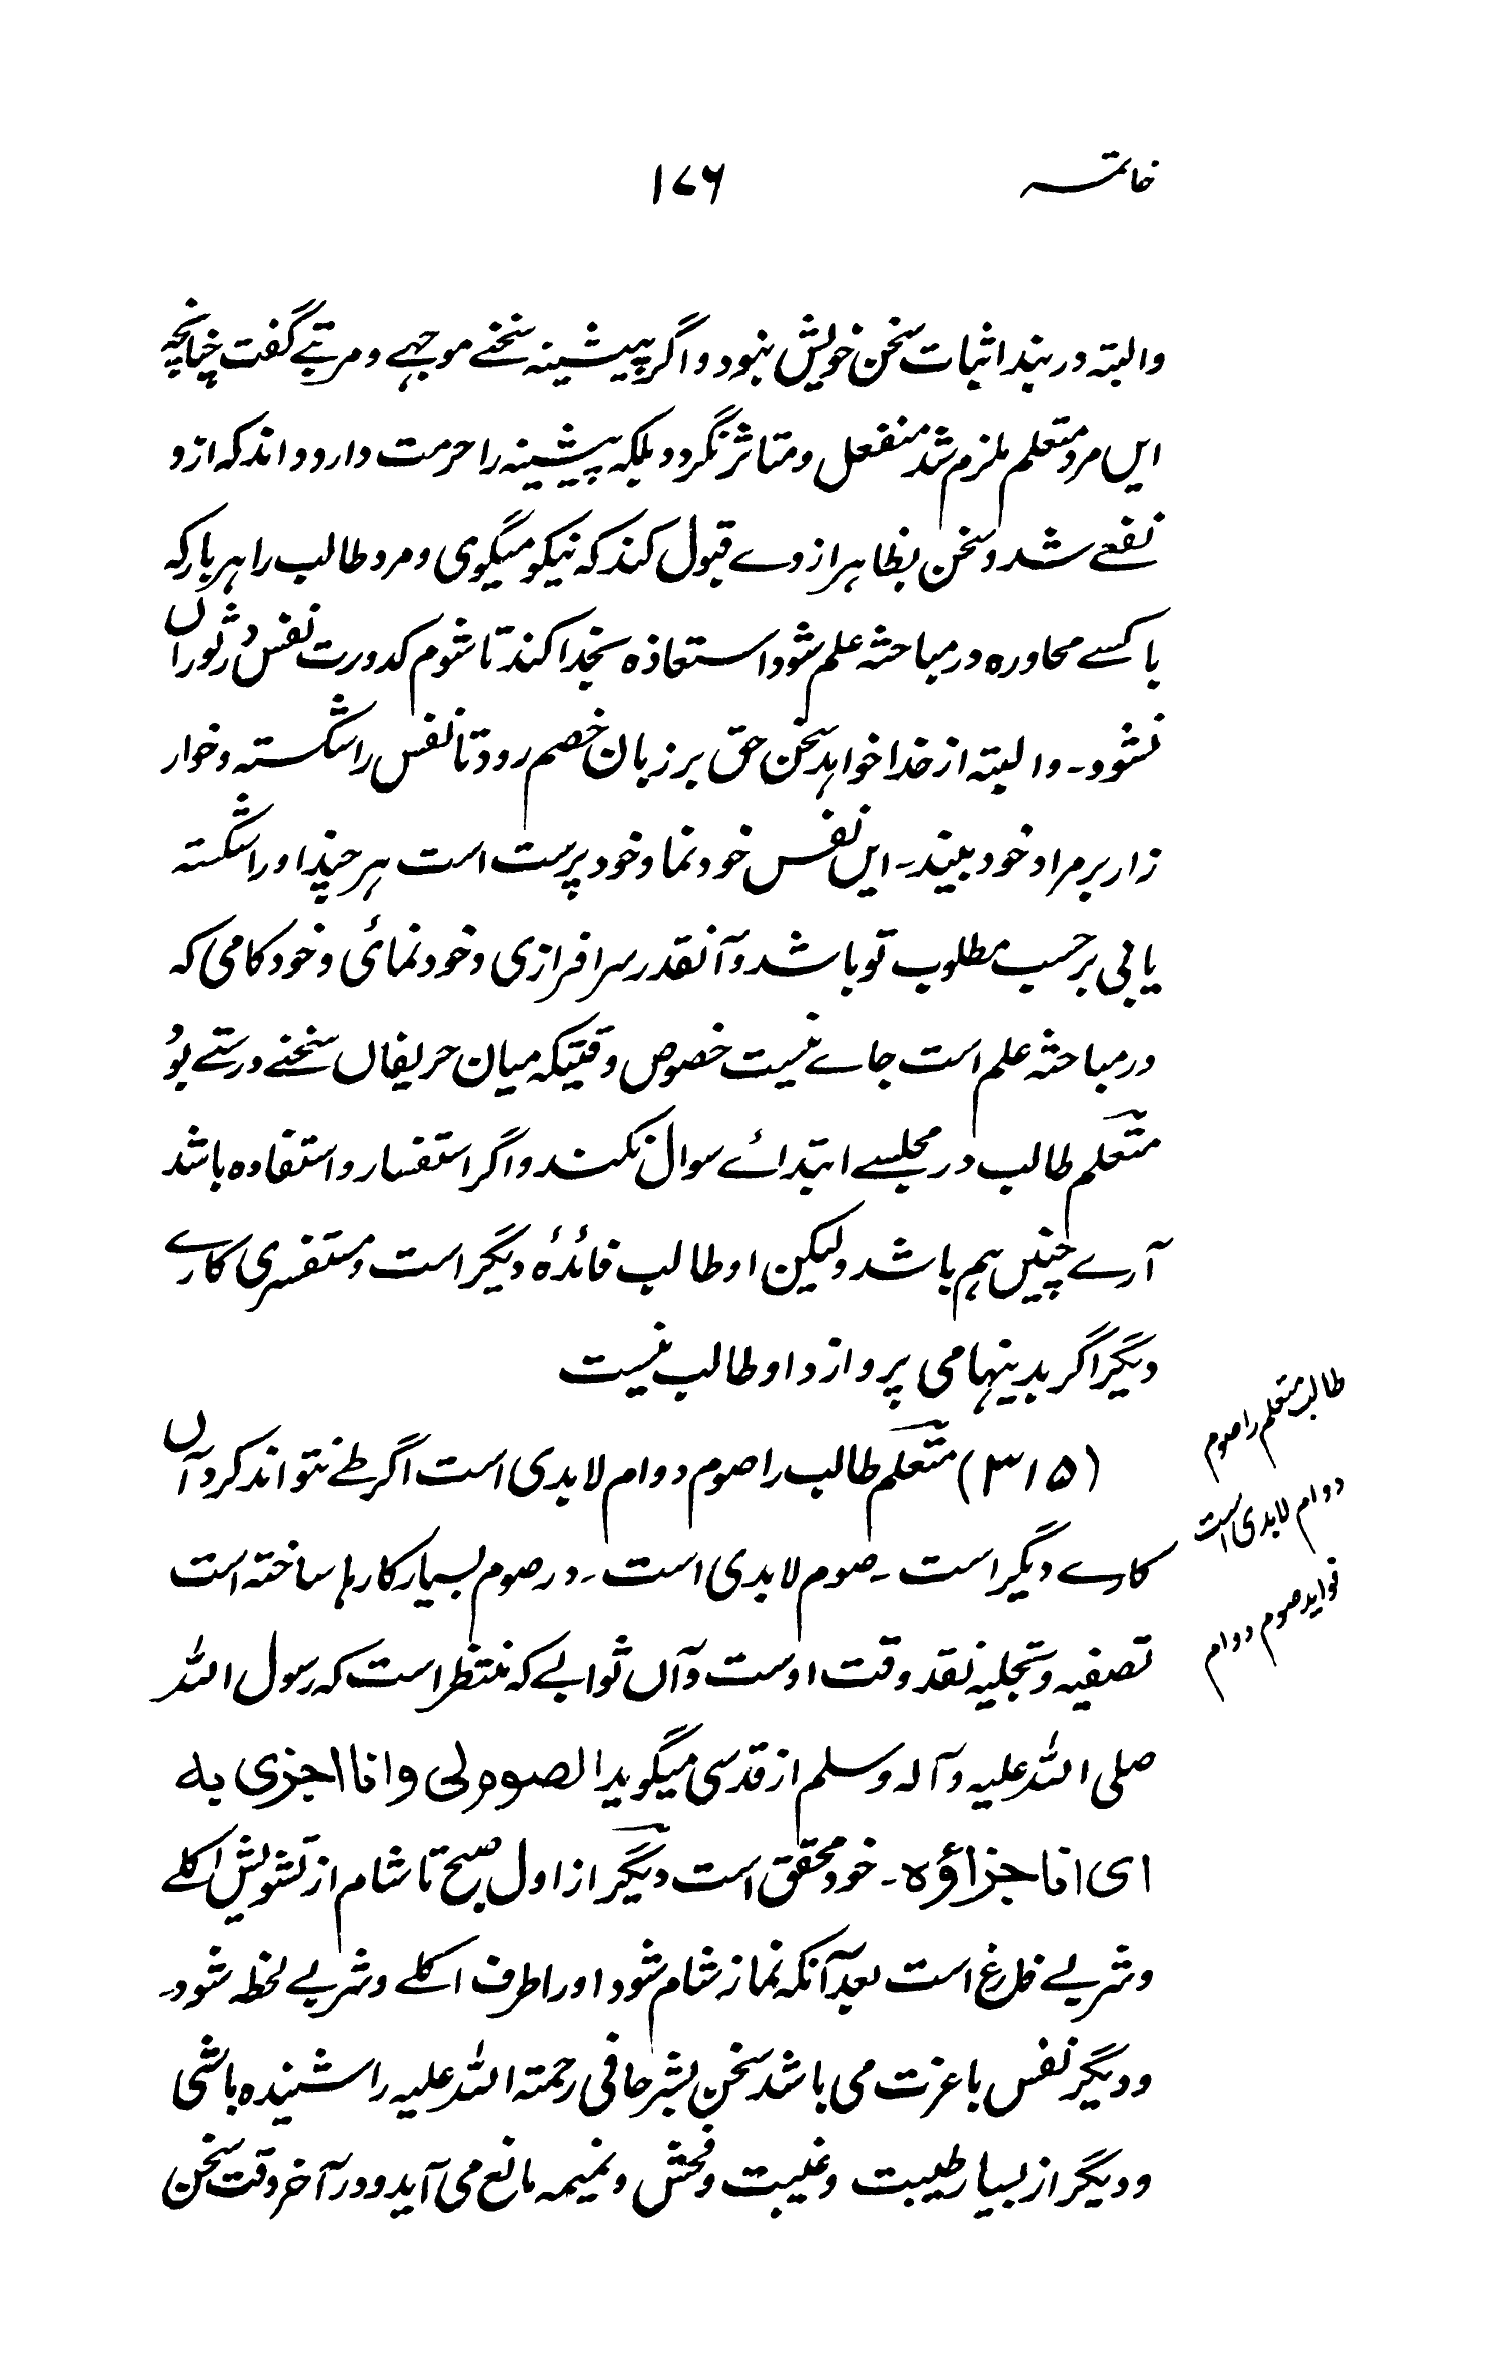 خاتمه ۱۷۶
والبته در بند اثبات سخن خویش نبود و اگر پیشینه سخنے موجہے و مرتبے گفت چنانچہ
ایں مرد متعلم ملزم شد منفعل و متاثر نگردد بلکہ پیشینہ را حرمت دارد و داند کہ ازو
نفعے شد و سخن بظاہر از وے قبول کند کہ نیکو میگوی و مرد طالب را ہر بار کہ
با کسے محاورہ در مباحثہ علم شود استعاذہ بخدا کند تا شوم کدورت نفس در ثوراں
نشود۔ والبتہ از خدا خواہد سخن حق بر زبان خصم رود تا نفس را شکستہ و خوار
زار بر مراد خود بیند۔ ایں نفس خود نما و خود پرست است ہر چند او را شکستہ
یابی بر حسب مطلوب تو باشد و آنقدر سرافرازی و خود نمائی و خود کامی کہ
در مباحثہ علم است جاے نیست خصوص وقتیکہ میان حریفاں سخنے درستے بود
متعلم طالب در مجلسے ابتدائے سوال نکند و اگر استفسار و استفادہ باشد
آرے چنیں ہم باشد ولیکن او طالب فائدۂ دیگر است و مستفسری کارے
دیگر اگر بدینہا می پردازد او طالب نیست
(۳۱۵) متعلم طالب را صوم دوام لابدی است اگر طے نتواند کرد آں
کارے دیگر است۔ صوم لابدی است۔ در صوم بسیار کارہا ساختہ است
تصفیہ و تجلیہ نقد وقت اوست و آں ثوابے کہ منتظر است کہ رسول اللہ
صلی اللہ علیہ و آلہ وسلم از قدسی میگوید الصوم لی وانا اجزی بہ
ای انا جزاؤہ۔ خود محقق است دیگر از اول صبح تا شام از تشویش اکلے
و شربے فارغ است بعد آنکہ نماز شام شود او را طرف اکلے و شربے لحظہ شود۔
و دیگر نفس با عزت می باشد سخن بشر حافی رحمتہ اللہ علیہ را شنیدہ باشی
و دیگر از بسیار طیبت و غیبت و فحش و نمیمہ مانع می آید و در آخر وقت سخن
طالب متعلم را صوم
دوام لابدی است
فواید صوم دوام